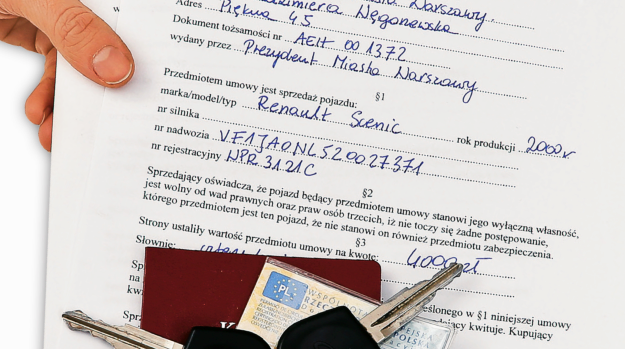 Warszawy.
Adres Piękna 45
Dokument tożsamości nr AEH 001372
wydany przez Prezydent Miasta Warszawy
§1
Przedmiotem umowy jest sprzedaż pojazdu:
marka/model/typ Renault Scenic rok produkcji 2000r
nr silnika
nr nadwozia VF1JA0NL520027371
nr rejestracyjny WPR 3121C
§2
Sprzedający oświadcza, że pojazd będący przedmiotem umowy stanowi jego wyłączną własność,
jest wolny od wad prawnych oraz praw osób trzecich, iż nie toczy się żadne postępowanie,
którego przedmiotem jest ten pojazd, że nie stanowi on również przedmiotu zabezpieczenia.
§3
Strony ustaliły wartość przedmiotu umowy na kwotę: 4000zł
Słownie:
PL
określonego w §1 niniejszej umowy
kwituje. Kupujący